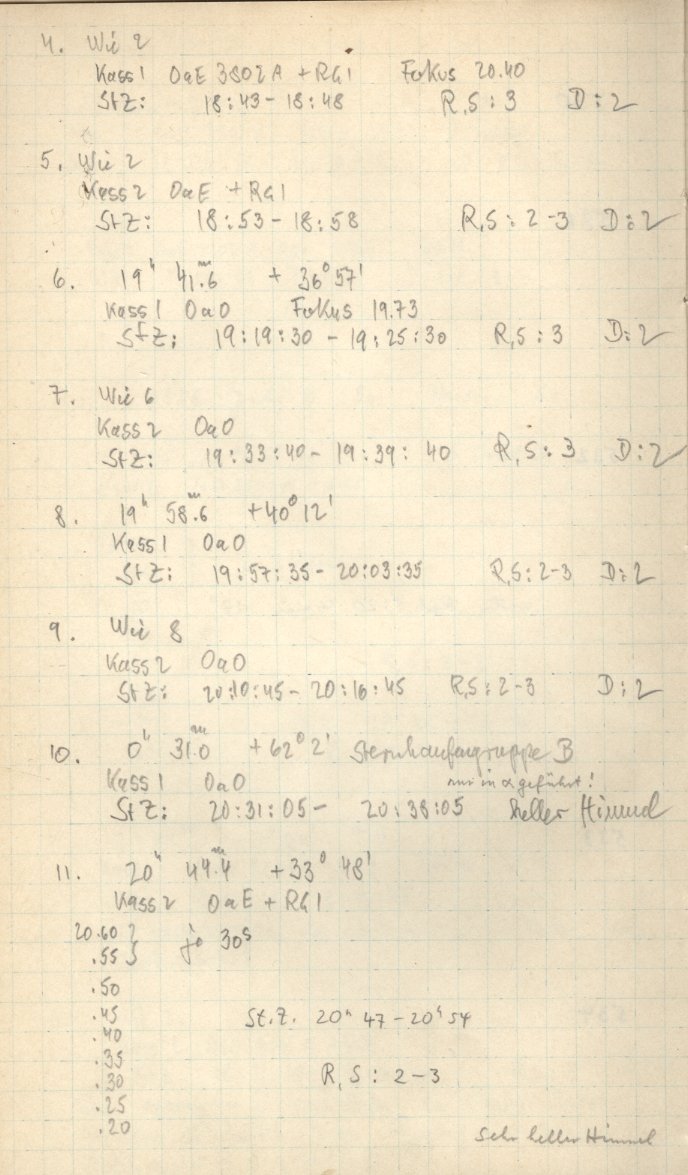 4. Wie 2
Kass 1 OaE 3802A + RG1 Fokus 20.40
StZ: 18:43 - 18:48 R,S: 3 D: 2
5. Wie 2
Kass 2 OaE + RG1
StZ: 18:53 - 18:58 R,S: 2-3 D: 2
6. 19h 41m.6 + 36° 57'
Kass 1 OaO Fokus 19.73
StZ: 19:19:30 - 19:25:30 R,S: 3 D: 2
7. Wie 6
Kass 2 OaO
StZ: 19:33:40 - 19:39:40 R,S: 3 D: 2
8. 19h 58m.6 +40° 12'
Kass 1 OaO
StZ: 19:57:35 - 20:03:35 R,S: 2-3 D: 2
9. Wie 8
Kass 2 OaO
StZ: 20:10:45 - 20:16:45 R,S: 2-3 D: 2
10. 0h 31m.0 + 62° 2' Sternhaufengruppe B
Kass 1 OaO nur in α geführt!
StZ: 20:31:05 - 20:38:05 heller Himmel
11. 20h 44m.4 +33° 48'
Kass 2 OaE + RG1
20.60 } je 30s
.55
.50
.45 St.Z. 20h 47 - 20h 54
.40
.35
.30 R,S: 2-3
.25
.20
Sehr heller Himmel